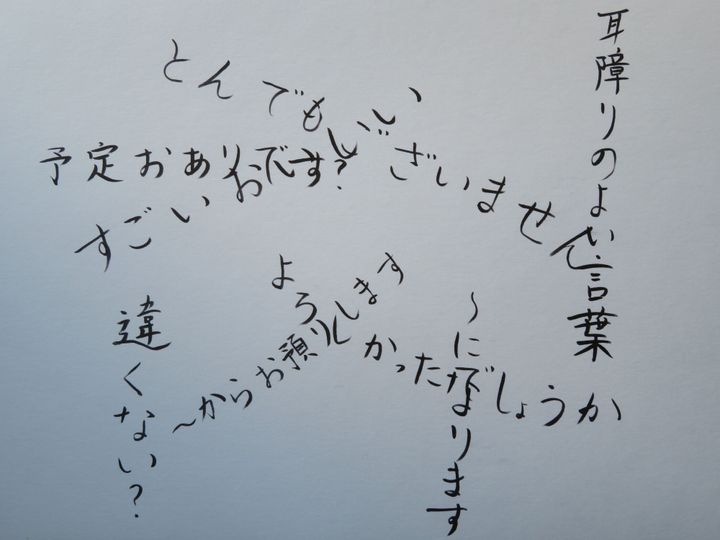 耳障りのよい言葉
とんでもございません
予定おありです?
すごいおいしい
よろしかったでしょうか
～からお預りします
～になります
違くない?